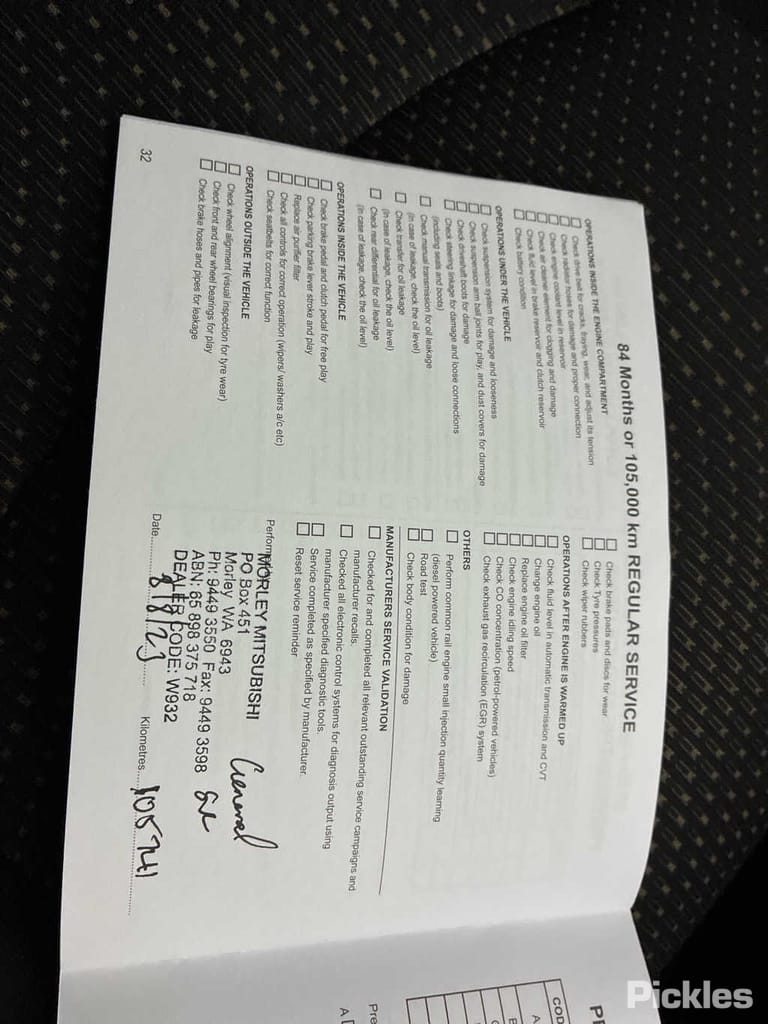 84 Months or 105,000 km REGULAR SERVICE
OPERATIONS INSIDE THE ENGINE COMPARTMENT
Check drive belt for cracks, fraying, wear, and adjust its tension
Check radiator hoses for damage and proper connection
Check engine coolant level in reservoir
Check air cleaner element for clogging and damage
Check fluid level in brake reservoir and clutch reservoir
Check battery condition
OPERATIONS UNDER THE VEHICLE
Check suspension system for damage and looseness
Check suspension arm ball joints for play, and dust covers for damage
Check driveshaft boots for damage
Check steering linkage for damage and loose connections
(including seals and boots)
Check manual transmission for oil leakage
(in case of leakage, check the oil level)
Check transfer for oil leakage
(in case of leakage, check the oil level)
Check rear differential for oil leakage
(in case of leakage, check the oil level)
OPERATIONS INSIDE THE VEHICLE
Check brake pedal and clutch pedal for free play
Check parking brake lever stroke and play
Replace air purifier filter
Check all controls for correct operation (wipers/ washers a/c etc)
Check seatbelts for correct function
OPERATIONS OUTSIDE THE VEHICLE
Check wheel alignment (visual inspection for tyre wear)
Check front and rear wheel bearings for play
Check brake hoses and pipes for leakage
32
Check brake pads and discs for wear
Check Tyre pressures
Check wiper rubbers
OPERATIONS AFTER ENGINE IS WARMED UP
Check fluid level in automatic transmission and CVT
Change engine oil
Replace engine oil filter
Check engine idling speed
Check CO concentration (petrol-powered vehicles)
Check exhaust gas recirculation (EGR) system
OTHERS
Perform common rail engine small injection quantity learning
(diesel powered vehicle)
Road test
Check body condition for damage
MANUFACTURERS SERVICE VALIDATION
Checked for and completed all relevant outstanding service campaigns and
manufacturer recalls.
Checked all electronic control systems for diagnosis output using
manufacturer specified diagnostic tools.
Service completed as specified by manufacturer.
Reset service reminder
MORLEY MITSUBISHI
PO Box 451
Morley WA 6943
Ph: 9449 3550 Fax: 9449 3598
ABN: 65 898 375 718
DEALER CODE: W932
General
Date 8/8/23 Kilometres 105741
Pickles